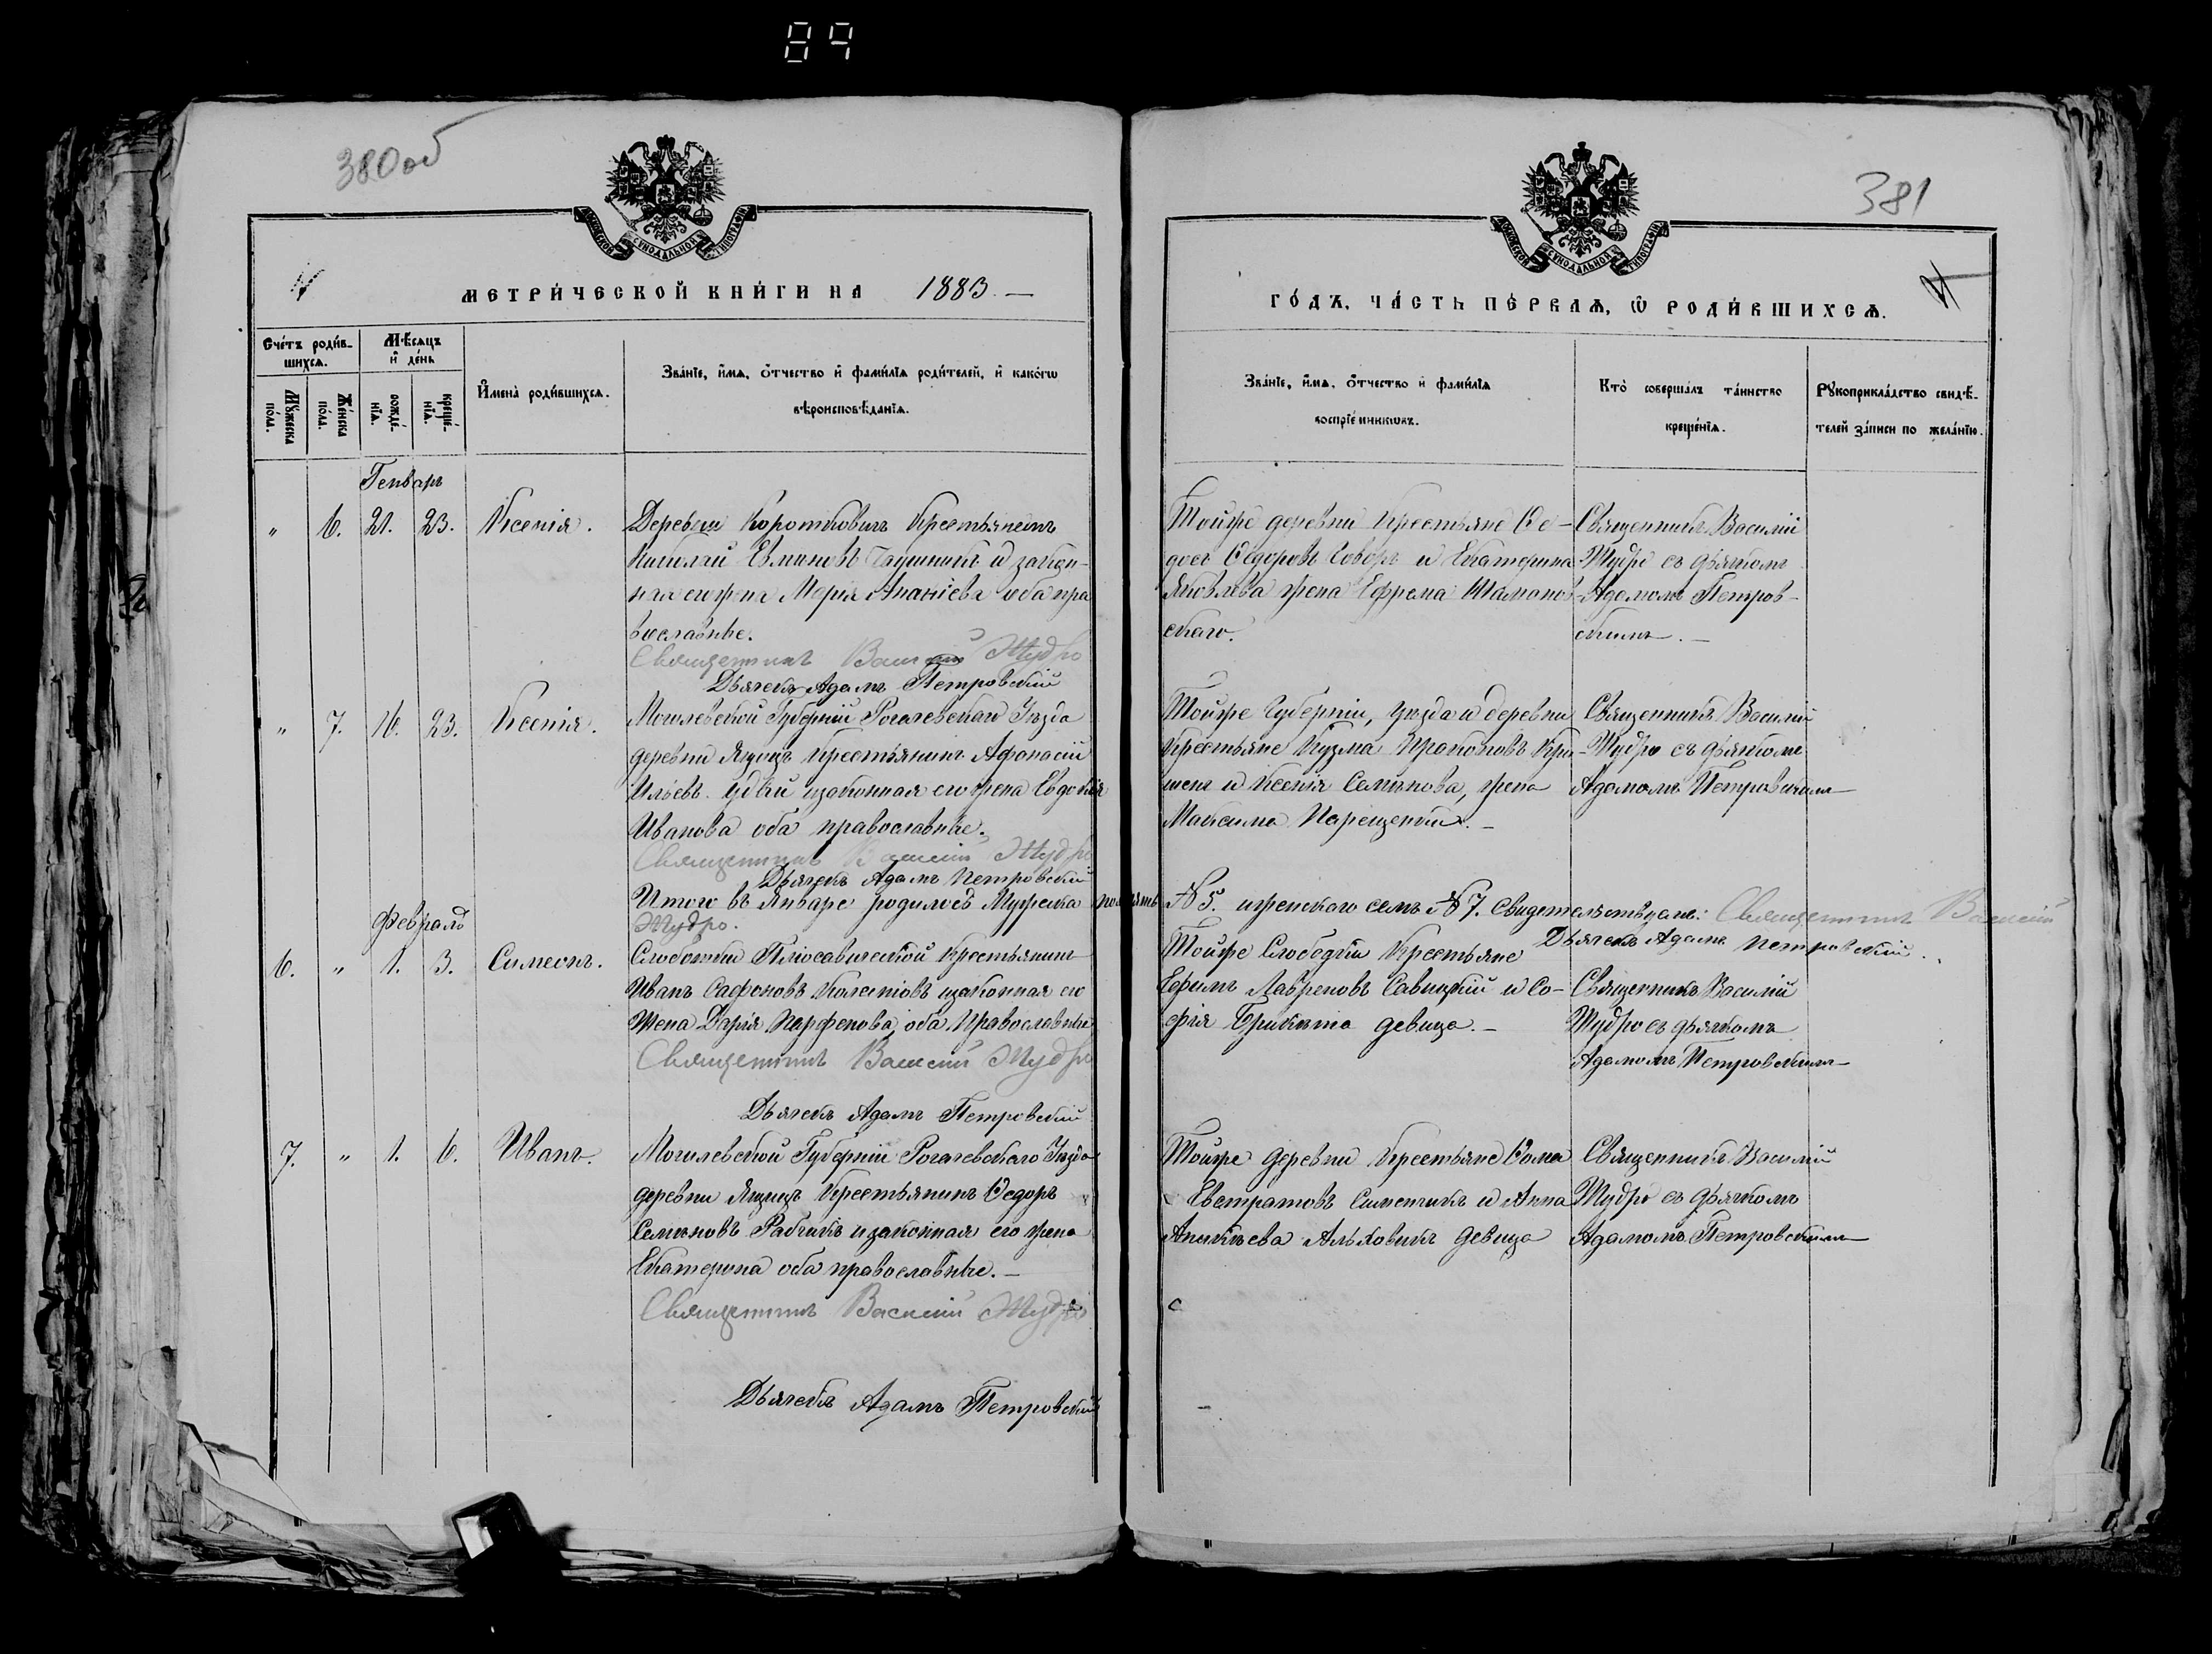 89
380 об
381
МОСКОВСКОЙ СУНОДАЛЬНОЙ ТИПОГРАФІИ
МОСКОВСКОЙ СУНОДАЛЬНОЙ ТИПОГРАФІИ
МЕТРИ́ЧЕСКОЙ КНИ́ГИ НА 1883. —
ГО́ДЪ, ЧА́СТЬ ПЕ́РВАѦ, Ѡ РОДИ́ВШИХСѦ.
Сче́тъ роди́в-
шихсѧ.
Мѣ́сѧцъ
и҆ де́нь
Мꙋ́жеска по́ла.
Же́нска по́ла.
рожде́-
нїѧ.
креще́-
нїѧ.
И҆мена̀ роди́вшихсѧ.
Зва́нїе, и҆́мѧ, ѻ҆́тчество и҆ фами́лїѧ роди́телей, и҆ како́гѡ
вѣроисповѣ́данїѧ.
Зва́нїе, и҆́мѧ, ѻ҆́тчество и҆ фами́лїѧ
воспрїе́мникѡвъ.
Кто̀ соверша́лъ та́инство
креще́нїѧ.
Рꙋкоприкла́дство свидѣ́-
телей за́писи по жела́нїю.
Генварь
" 6. 21. 23. Ксенія.
Деревни Короткович Крестьянинъ
Николай и закон-
ная его жена Марія Ананіева оба пра
вославные.
Священникъ Василій Жудро
Дьячекъ Адамъ Петровскій
Тойже деревни Крестьяне Ѳе-
досъ Ѳедоровъ и Екатерина
Яковлева жена Ефрема
скаго.
Священникъ Василій
Жудро съ дьячкомъ
Адамомъ Петров-
скимъ. —
" 7. 16. 23. Ксенія.
Могилевской Губерніи Рогачевскаго Уѣзда
деревни Ящицъ Крестьянинъ Афонасій
Ильевъ изаконная его жена Евдокія
Иванова оба православные.
Священникъ Василій Жудро
Дьячекъ Адамъ Петровскій
Тойже Губерніи, Уѣзда и деревни
Крестьяне Кузма Прокоповъ
и Ксенія Семенова, жена
Максима
Священникъ Василій
Жудро съ дьячкомъ
Адамомъ Петровскимъ
Итого въ Январе родилось Мужеска пол пять № 5. иженскаго семь № 7. Свидетельствуемъ: Священникъ Василій
Жудро.
Дьячекъ Адамъ Петровскій.
Февраль
6. " 1. 3. Симеонъ.
Слободки Крестьянинъ
Иванъ Сафоновъ изаконная его
жена Дарія Парфенова оба Православные
Священникъ Василій Жудро
Дьячекъ Адамъ Петровскій
Тойже Слободки Крестьяне
Ефимъ Лавреновъ Савицкій и Со-
фія девица. —
Священникъ Василій
Жудро съ дьячкомъ
Адамомъ Петровскимъ
7. " 1. 6. Иванъ.
Могилевской Губерніи Рогачевскаго Уѣзда
деревни Ящицъ Крестьянинъ Ѳедоръ
Семеновъ Рабчикъ изаконная его жена
Екатерина оба православные. —
Священникъ Василій Жудро
Дьячекъ Адамъ Петровскій
Тойже деревни Крестьяне Ѳома
Евстратовъ и Анна
девица
Священникъ Василій
Жудро съ дьячкомъ
Адамомъ Петровскимъ